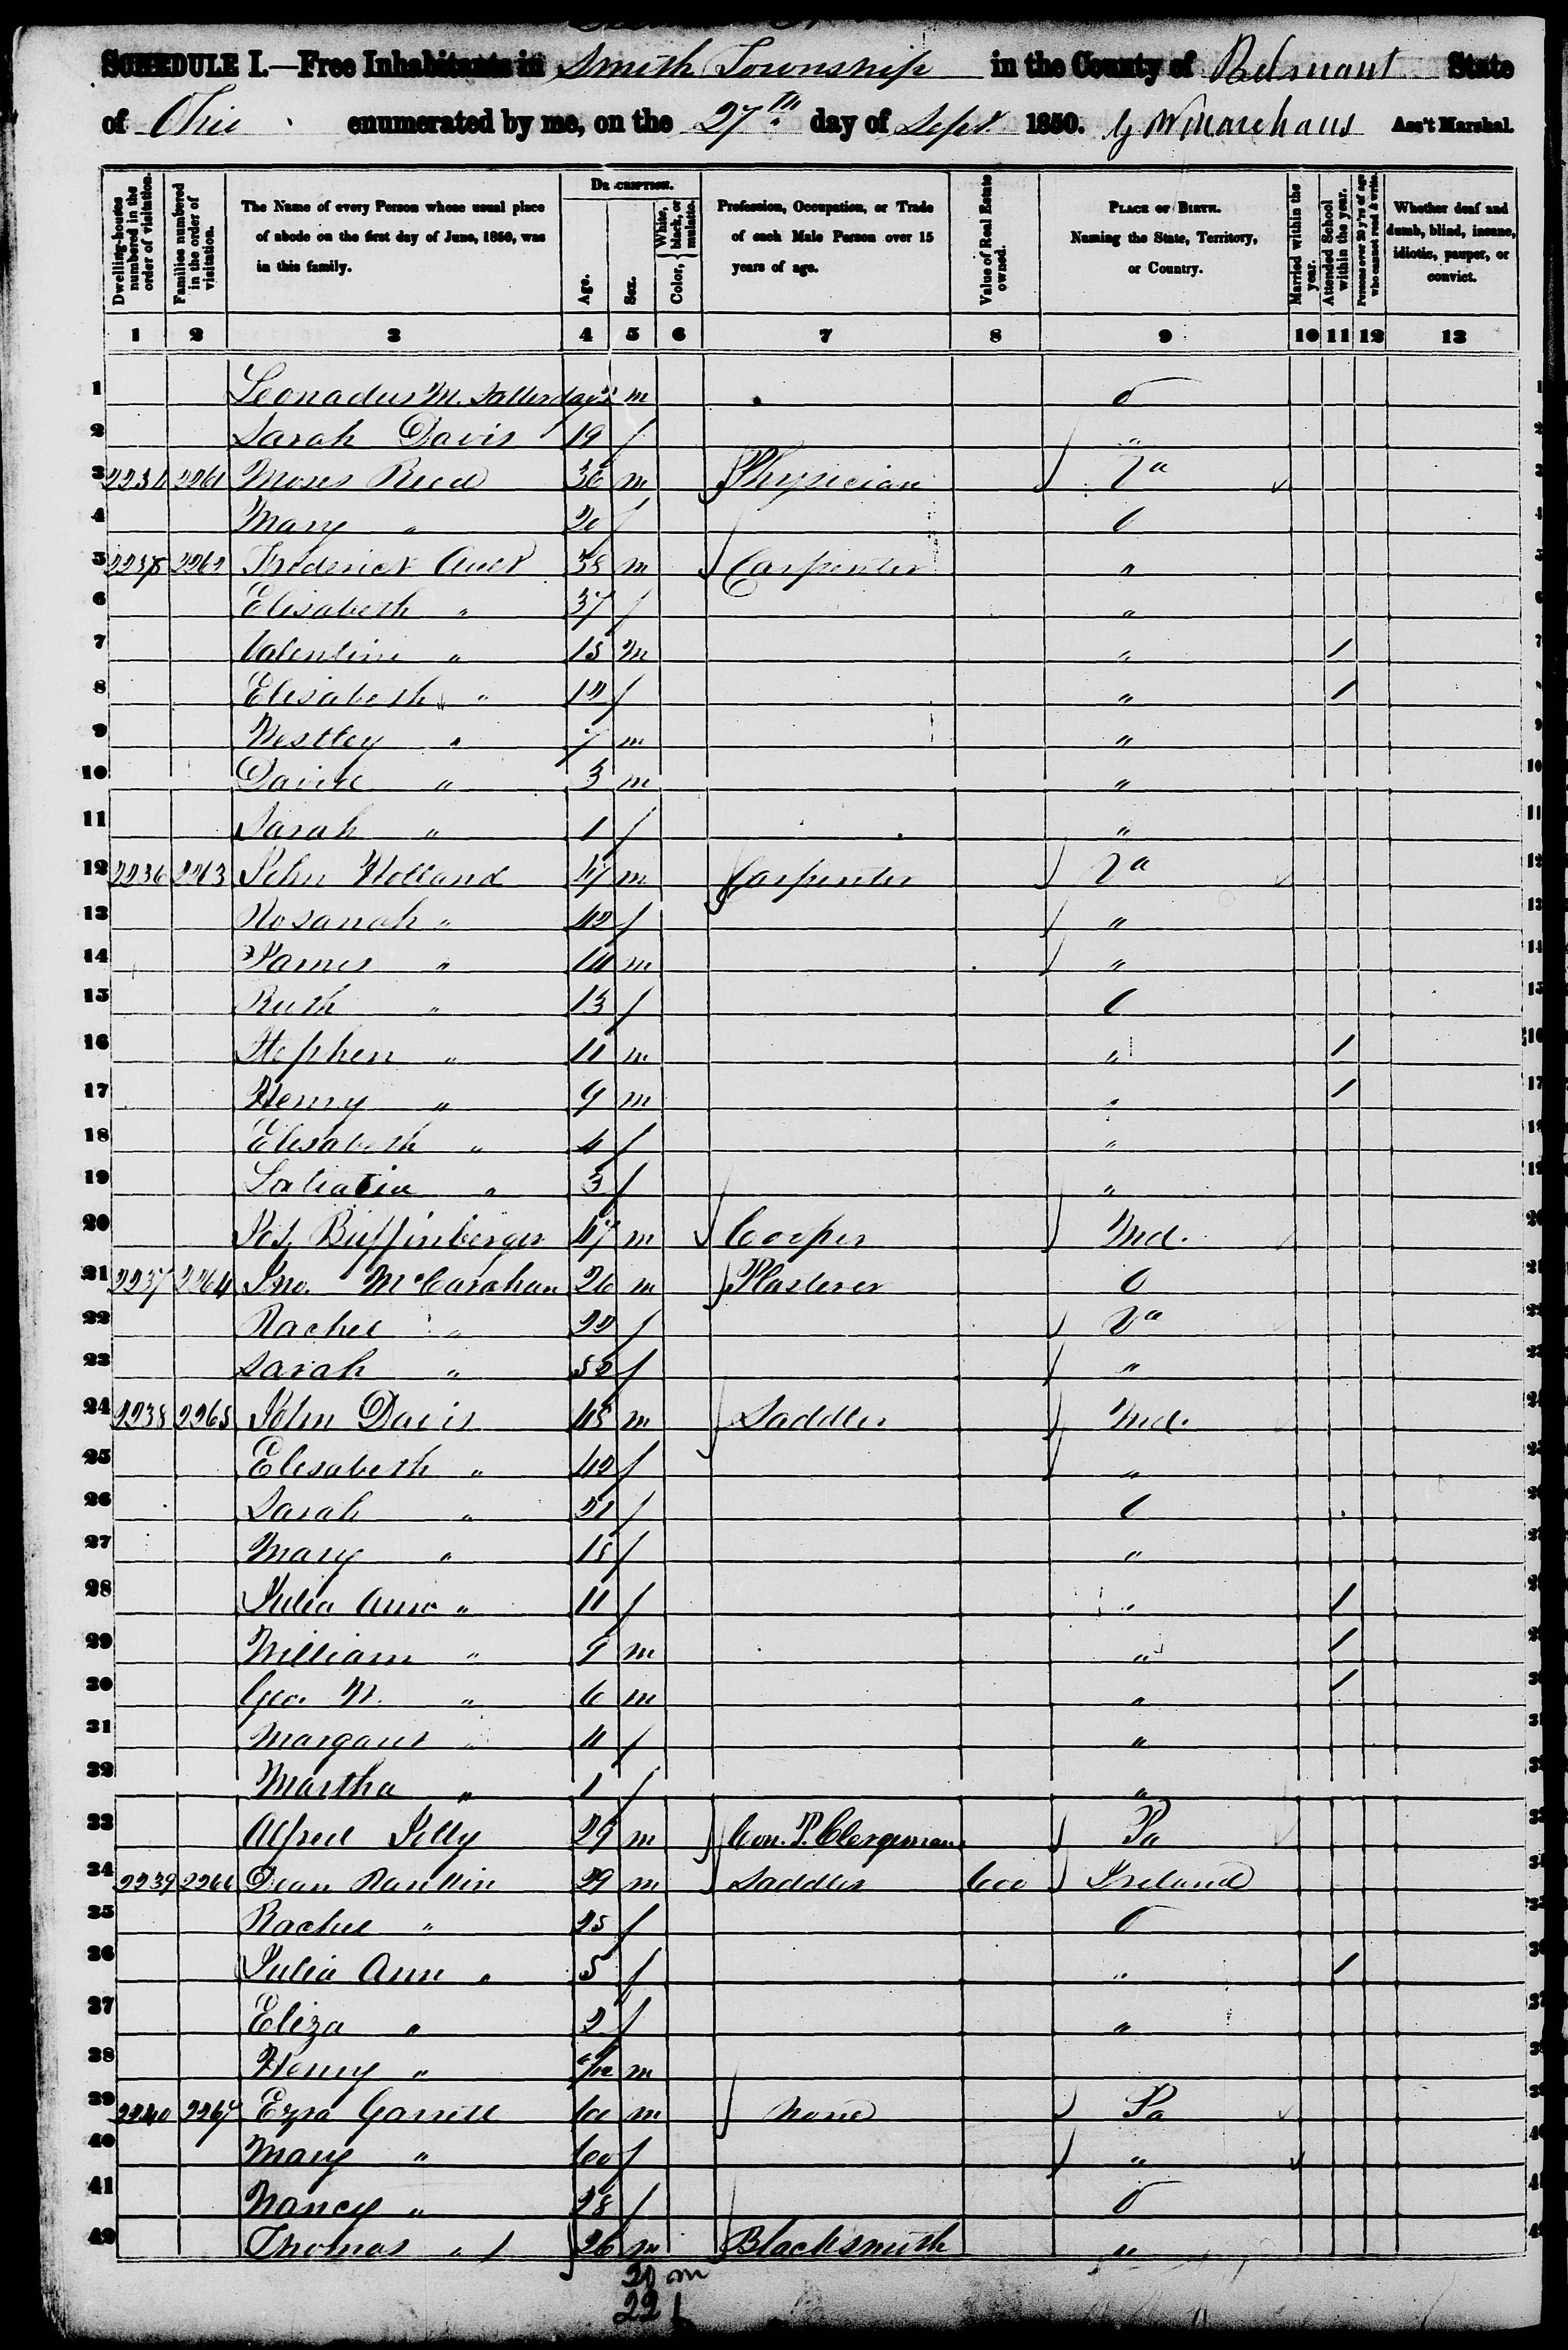 SCHEDULE I.—Free Inhabitants in Smith Township in the County of Belmont State
of Ohio enumerated by me, on the 27th day of Sept 1850. Ass't Marshal.
Dwelling-houses numbered in the order of visitation.
Families numbered in the order of visitation.
The Name of every Person whose usual place of abode on the first day of June, 1850, was in this family.
Description.
Age.
Sex.
Color, { White, black, or mulatto.
Profession, Occupation, or Trade of each Male Person over 15 years of age.
Value of Real Estate owned.
Place of Birth. Naming the State, Territory, or Country.
Married within the year.
Attended School within the year.
Persons over 20 y'rs of age who cannot read & write.
Whether deaf and dumb, blind, insane, idiotic, pauper, or convict.
1 2 3 4 5 6 7 8 9 10 11 12 13
1 M. m O
2 Sarah Davis 19 f "
3 2261 Moses 36 m Physician Va
4 Mary " 20 f O
5 2262 Frederick 38 m Carpenter "
6 Elisabeth " 37 f "
7 Valentine " 15 m " /
8 Elisabeth " 12 f " /
9 Westley " 7 m "
10 David " 3 m "
11 Sarah " 1 f "
12 2236 2263 John Holland 47 m Carpenter Va
13 Rosanah " 42 f "
14 James " 14 m "
15 Ruth " 13 f O
16 Stephen " 11 m " /
17 Henry " 9 m " /
18 Elisabeth " 4 f "
19 " 3 f "
20 Jos. Buffinberger 47 m Cooper Md.
21 2237 2264 Jno. McCarahan 26 m Plasterer O
22 Rachel " 22 f Va
23 Sarah " 52 f "
24 2238 2265 John Davis 45 m Saddler Md.
25 Elisabeth " 42 f "
26 Sarah " 21 f O
27 Mary " 15 f "
28 Julia Ann " 11 f " /
29 William " 9 m " /
30 Geo. W. " 6 m " /
31 Margaret " 4 f "
32 Martha " 1 f "
33 Alfred 29 m P. Clergeman Pa
34 2239 2266 Dean Rankin 29 m Saddler 600 Ireland
35 Rachel " 25 f O
36 Julia Ann " 5 f " /
37 Eliza " 2 f "
38 Henry " m
39 2240 2267 Ezra Garrett 60 m None Pa
40 Mary " 60 f "
41 Nancy " 28 f O
42 Thomas " 26 m Blacksmith "
20 m
22 f